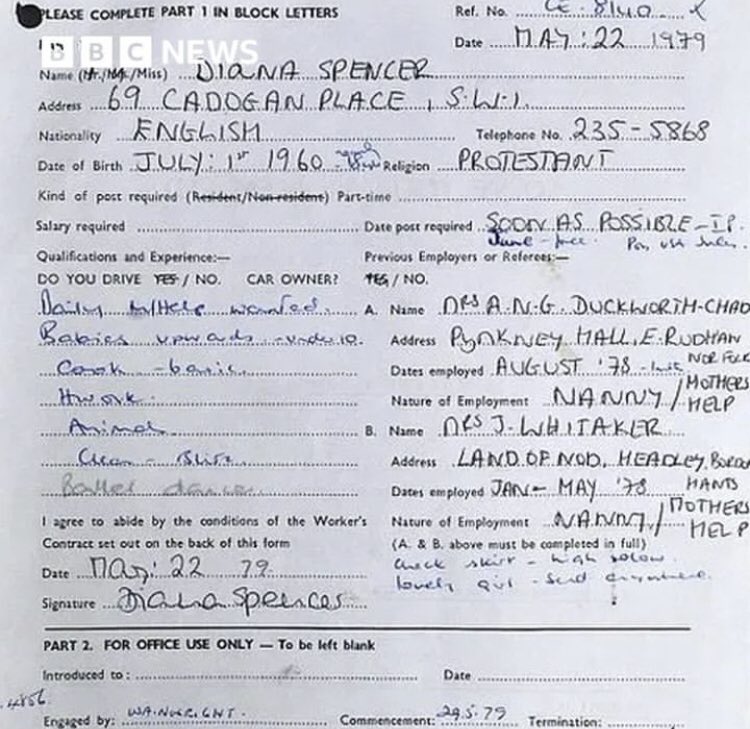 PLEASE COMPLETE PART 1 IN BLOCK LETTERS
Ref. No.
BBC NEWS
Date MAY: 22 1979
Name (Mr./Mrs./Miss) DIANA SPENCER
Address 69 CADOGAN PLACE, S.W.1.
Nationality ENGLISH Telephone No. 235-5868
Date of Birth JULY: 1st 1960 Religion PROTESTANT
Kind of post required (Resident/Non-resident) Part-time
Salary required Date post required SOON AS POSSIBLE
June
Qualifications and Experience:— Previous Employers or Referees:—
DO YOU DRIVE YES / NO. CAR OWNER? YES / NO.
Daily M/Help wanted. A. Name MRS A.N.G. DUCKWORTH-CHAD
Babies upwards - under 10. Address PYNKNEY HALL, E. RUDHAM
NORFOLK
Cook - basic Dates employed AUGUST '78
H work. Nature of Employment NANNY / MOTHERS HELP
Animal B. Name MRS J. WHITAKER
Clean Address LAND OF NOD, HEADLEY,
HANTS
Ballet dance Dates employed JAN - MAY '78
I agree to abide by the conditions of the Worker's Nature of Employment NANNY / MOTHERS HELP
Contract set out on the back of this form (A. & B. above must be completed in full)
check skirt - high
Date May: 22 79
lovely girl - send anywhere.
Signature Diana Spencer
PART 2. FOR OFFICE USE ONLY — To be left blank
Introduced to: Date
Engaged by: WAINWRIGHT. Commencement: 29.5.79 Termination: